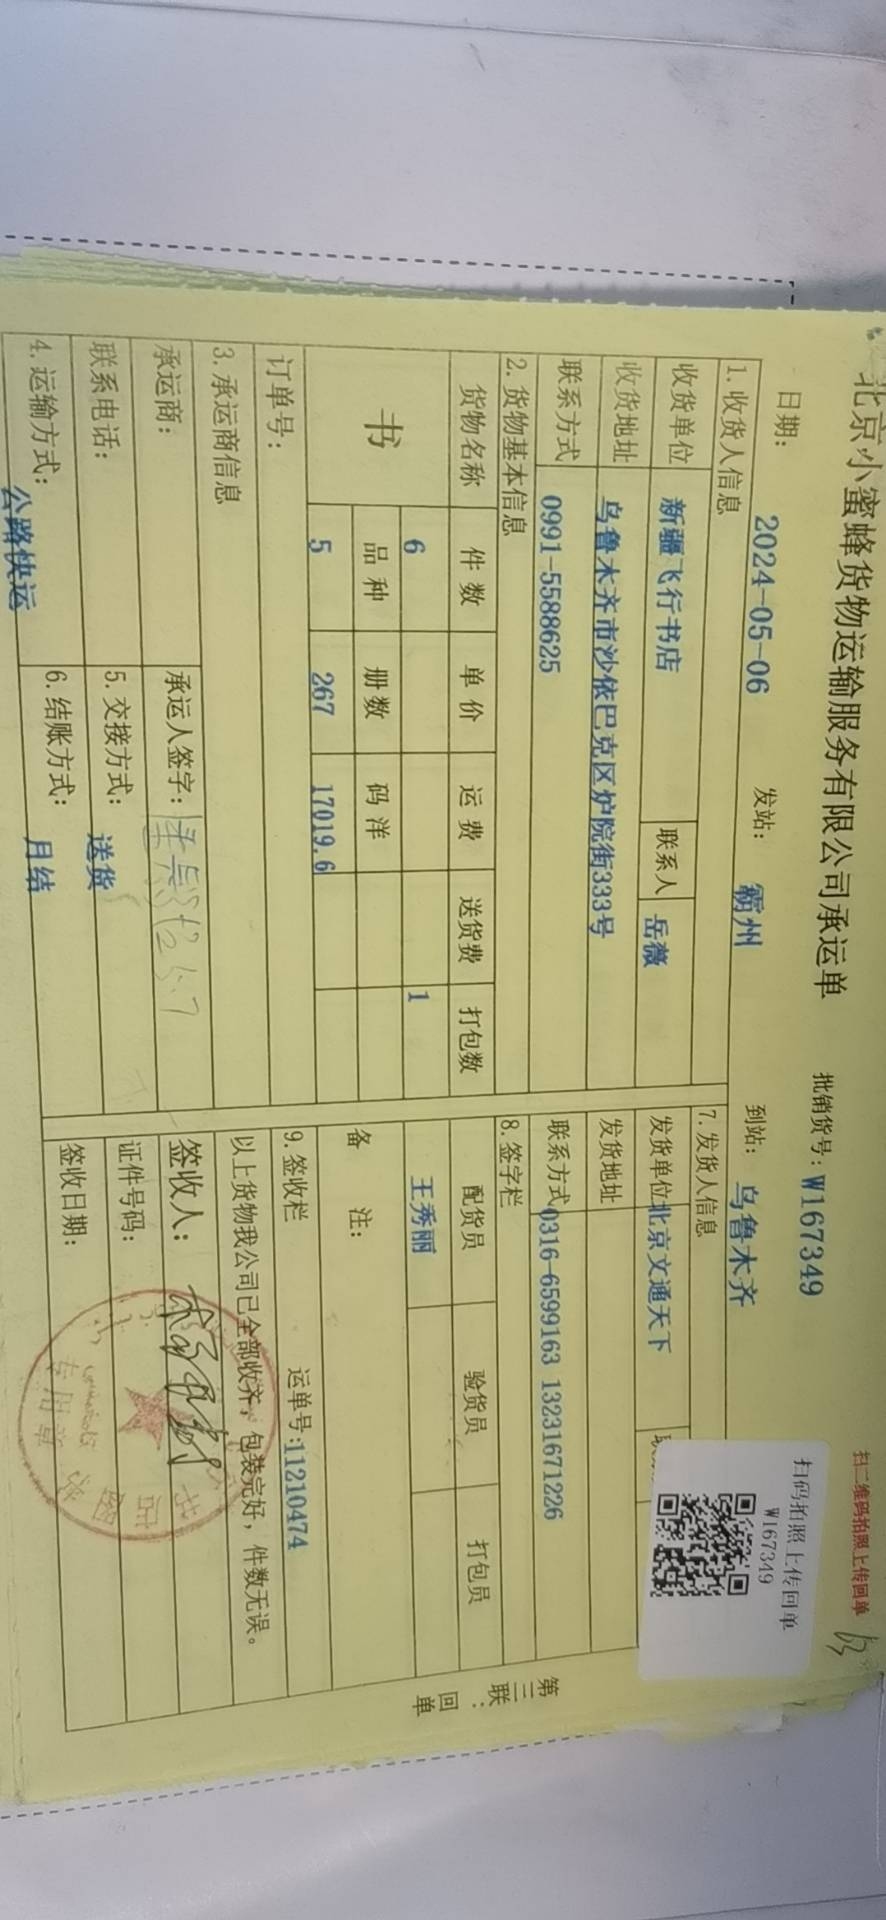 扫二维码拍照上传回单
北京小蜜蜂货物运输服务有限公司承运单
批销货号：W167349
日期： 2024-05-06 发站： 霸州 到站： 乌鲁木齐
扫码拍照上传回单
W167349
1. 收货人信息
收货单位 新疆飞行书店 联系人 岳薇
收货地址 乌鲁木齐市沙依巴克区炉院街333号
联系方式 0991-5588625
2. 货物基本信息
货物名称 件数 单价 运费 送货费 打包数
书 6 1
品种 册数 码洋
5 267 17019.6
订单号：
3. 承运商信息
承运商： 承运人签字：
联系电话： 5. 交接方式： 送货
4. 运输方式： 公路快运 6. 结账方式： 月结
7. 发货人信息
发货单位 北京文通天下
发货地址
联系方式 0316-6599163 13231671226
8. 签字栏
配货员 验货员 打包员
王秀丽
备注：
9. 签收栏 运单号:11210474
以上货物我公司已全部收齐，包装完好，件数无误。
签收人：
证件号码：
签收日期：
第三联：回单
专用章